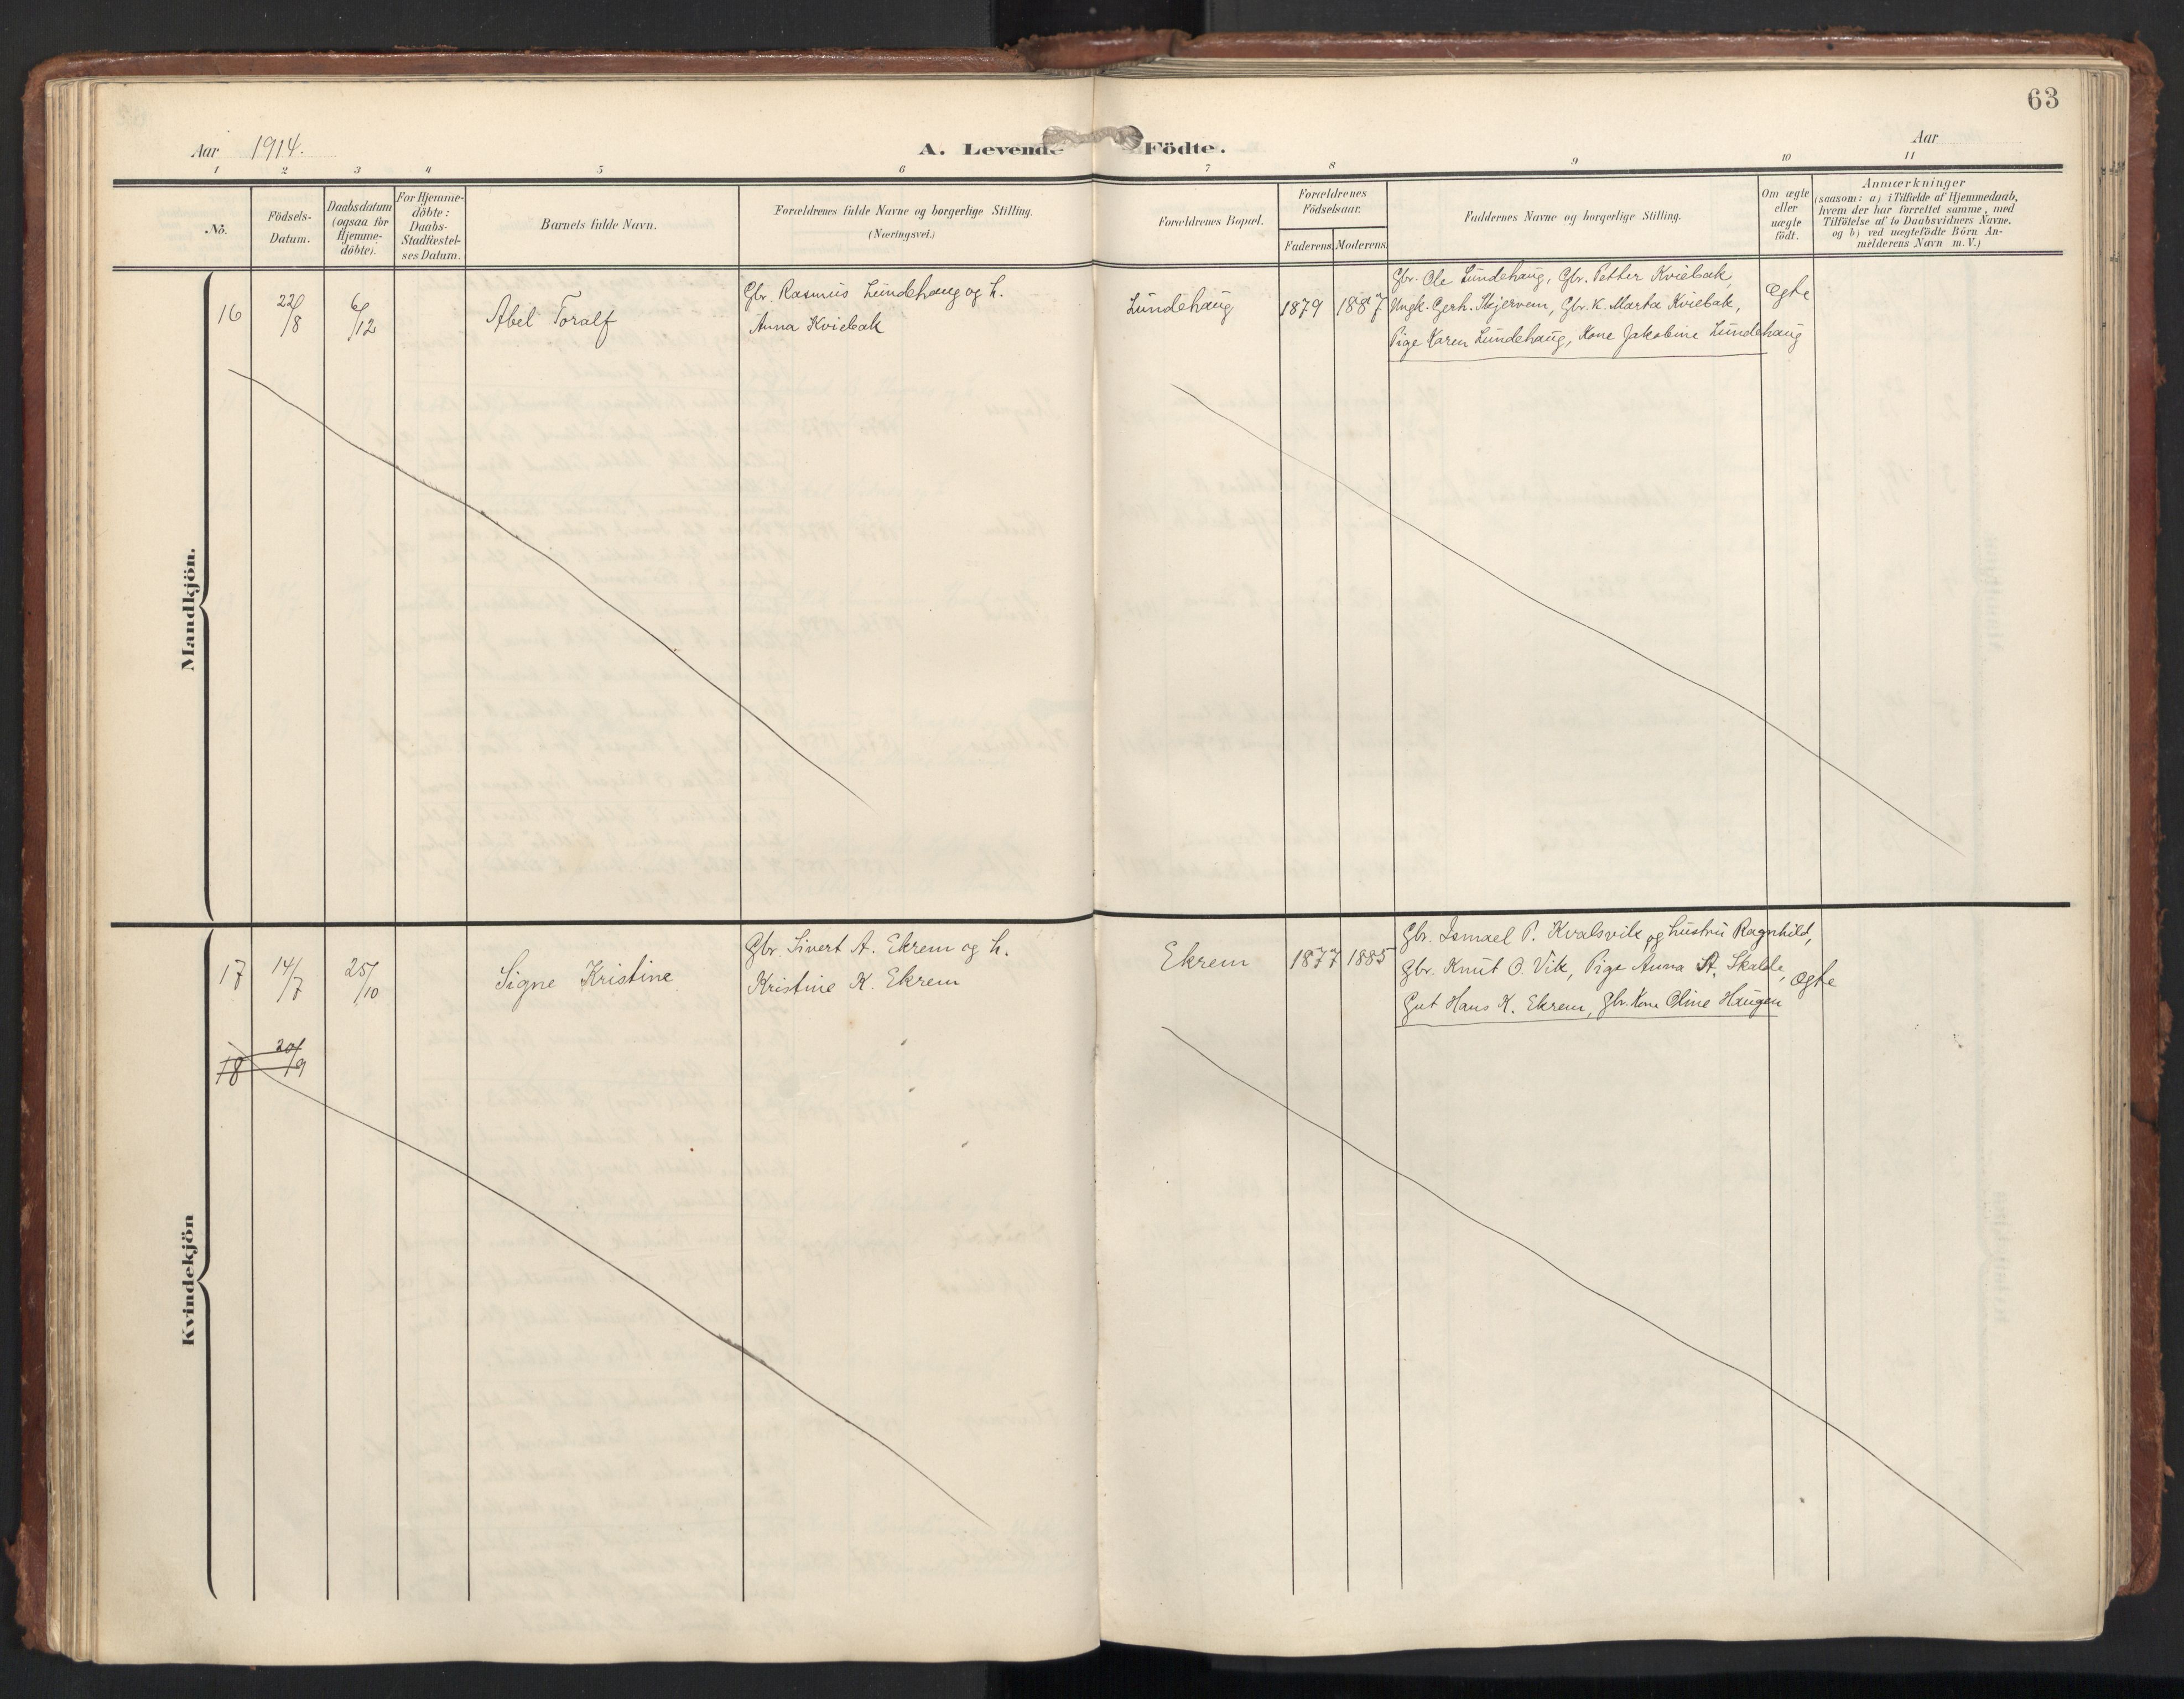 63
Aar 1914.
A. Levende Födte.
Aar
1 2 3 4 5 6 7 8 9 10 11
No.
Födsels-
Datum.
Daabsdatum
(ogsaa for
Hjemme-
döbte).
For Hjemme-
döbte:
Daabs-
Stadfæstel-
ses Datum.
Barnets fulde Navn.
Forældrenes fulde Navne og borgerlige Stilling.
(Næringsvei.)
Forældrenes Bopæl.
Forældrenes
Födselsaar.
Faderens. Moderens.
Faddernes Navne og borgerlige Stilling.
Om ægte
eller
uægte
födt.
Anmærkninger
(saasom: a) i Tilfælde af Hjemmedaab,
hvem der har forrettet samme, med
Tilföielse af to Daabsvidners Navne.
og b) ved uægtefödte Börn An-
melderens Navn m. V.)
Mandkjön.
16
22/8
6/12
Abel Toralf
Gbr. Rasmus Lundehaug og h.
Anna Kviebak
Lundehaug
1879
1887
Gbr. Ole Lundehaug, Gbr. Petter Kviebak,
Ungk. Gerh. Skjervem, Gbr. K. Marta Kviebak,
Pige Karen Lundehaug, Kone Jakobine Lundehaug
Ægte
Kvindekjön
17
14/7
25/10
Signe Kristine
Gbr. Sivert A. Ekrem og h.
Kristine K. Ekrem
Ekrem
1877
1885
Gbr. Ismael P. Kvalsvik og hustru Ragnhild,
Gbr. Knut O. Vik, Pige Anna A. Skalde,
Gut Hans K. Ekrem, Gbr. Kone Oline Haugen
Ægte
18
20/9